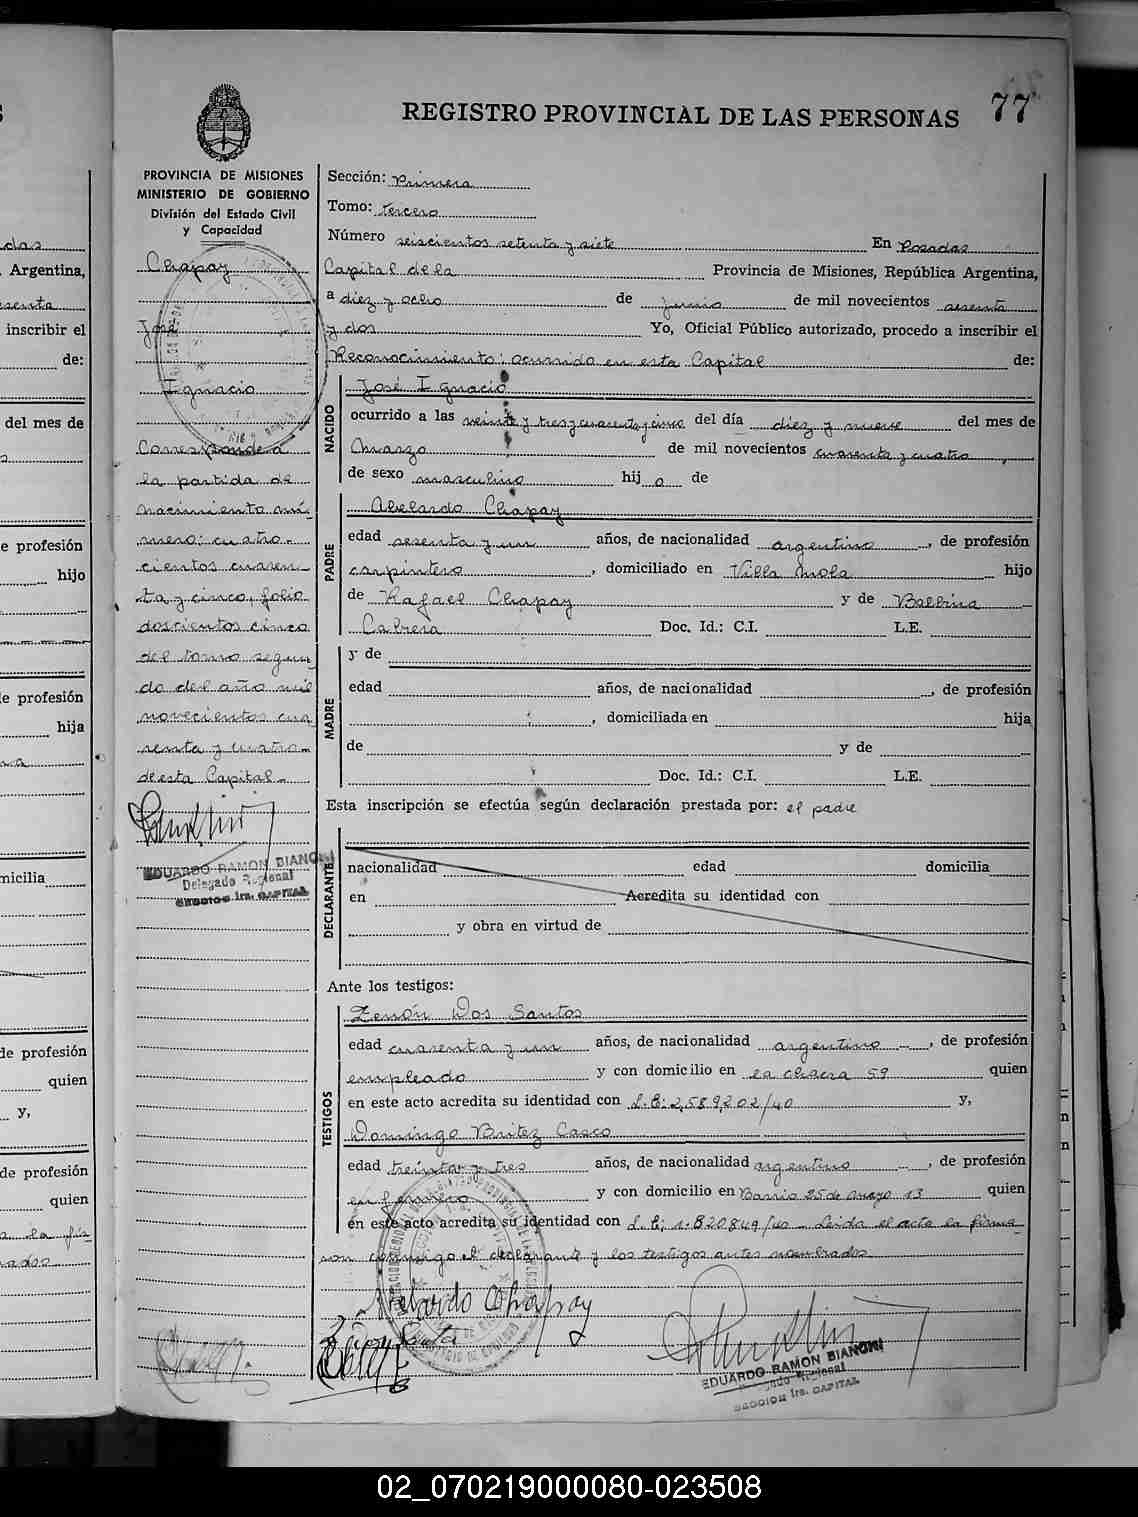 REGISTRO PROVINCIAL DE LAS PERSONAS 77
PROVINCIA DE MISIONES
MINISTERIO DE GOBIERNO
División del Estado Civil
y Capacidad
Chapay
José
Ignacio
Corresponde a
la partida de
nacimiento nú-
mero: cuatro-
cientos cuaren-
ta y cinco, folio
doscientos cinco
del tomo segun-
do del año mil
novecientos cua-
renta y cuatro-
de esta Capital.-
EDUARDO RAMON BIANCHI
Delegado Regional
SECCION 1ra. CAPITAL
Sección: Primera
Tomo: tercero
Número seiscientos setenta y siete En Posadas
Capital de la Provincia de Misiones, República Argentina,
a diez y ocho de junio de mil novecientos sesenta
y dos Yo, Oficial Público autorizado, procedo a inscribir el
Reconocimiento: ocurrido en esta Capital de:
NACIDO
José Ignacio
ocurrido a las veinte y tres y cuarenta y cinco del día diez y nueve del mes de
Marzo de mil novecientos cuarenta y cuatro,
de sexo masculino hij o de
PADRE
Abelardo Chapay
edad sesenta y un años, de nacionalidad argentino, de profesión
carpintero, domiciliado en Villa Mola hijo
de Rafael Chapay y de Balbina
Cabrera Doc. Id.: C.I. L.E.
MADRE
y de
edad años, de nacionalidad , de profesión
, domiciliada en hija
de y de
Doc. Id.: C.I. L.E.
Esta inscripción se efectúa según declaración prestada por: el padre
DECLARANTE
nacionalidad edad domicilia
en Acredita su identidad con
y obra en virtud de
Ante los testigos:
TESTIGOS
Zenón Dos Santos
edad cuarenta y un años, de nacionalidad argentino, de profesión
empleado y con domicilio en la chacra 59 quien
en este acto acredita su identidad con L.E: 2,589,202/40 y,
Domingo Britez Casco
edad treinta y tres años, de nacionalidad argentino, de profesión
enfermero y con domicilio en Barrio 25 de mayo 13 quien
en este acto acredita su identidad con L.E; 1.820849/40 - Leida el acta la firma
con conmigo el declarante y los testigos antes nombrados.
Abelardo Chapay
EDUARDO RAMON BIANCHI
Delegado Regional
SECCION 1ra. CAPITAL
Argentina,
inscribir el
de:
del mes de
e profesión
hijo
de profesión
hija
micilia
de profesión
quien
y,
de profesión
quien
02_070219000080-023508